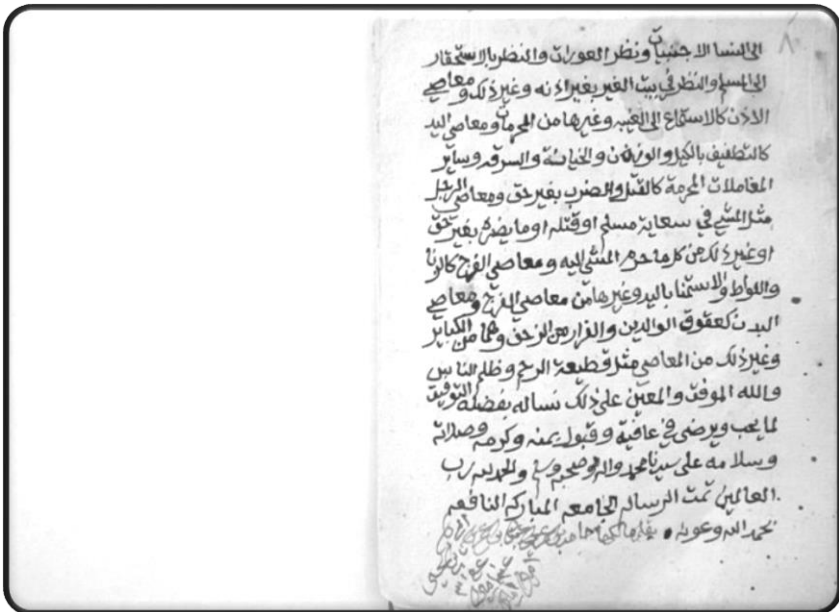 ٨
الى النسا الاجنبيات ونظر العورات والنضر بالاستحقار
الى المسلم والنظر في بيت الغير بغير اذنه وغير ذلك ومعاصي
الاذن كالاستماع الى الغيبه وغيرها من المحرمات ومعاصي اليد
كالتطفيف بالكيل والوزن والخيانة والسرقه وساير
المعاملات المحرمة كالقتل والضرب بغير حق ومعاصي الرجل
مثل المشي في سعاية مسلم او قتله او ما يضره بغير حق
او غير ذلك من كل ما حرم المشي اليه ومعاصي الفرج كالزنا
واللواط والاستمنا باليد وغيرها من معاصي الفرج ومعاصي
البدن كعقوق الوالدين والفرار من الزحف وهما من الكباير
وغير ذلك من المعاصي مثل قطيعة الرحم وظلم الناس
والله الموفق والمعين على ذلك نساله بفضله التوفيق
لما يحب ويرضى في عافية وقبول بمنه وكرمه وصلاته
وسلامه على سيدنا محمد واله وصحبه وسلم والحمد لله رب
العالمين تمت الرساله الجامعه المباركه النافعه
بحمد الله وعونه